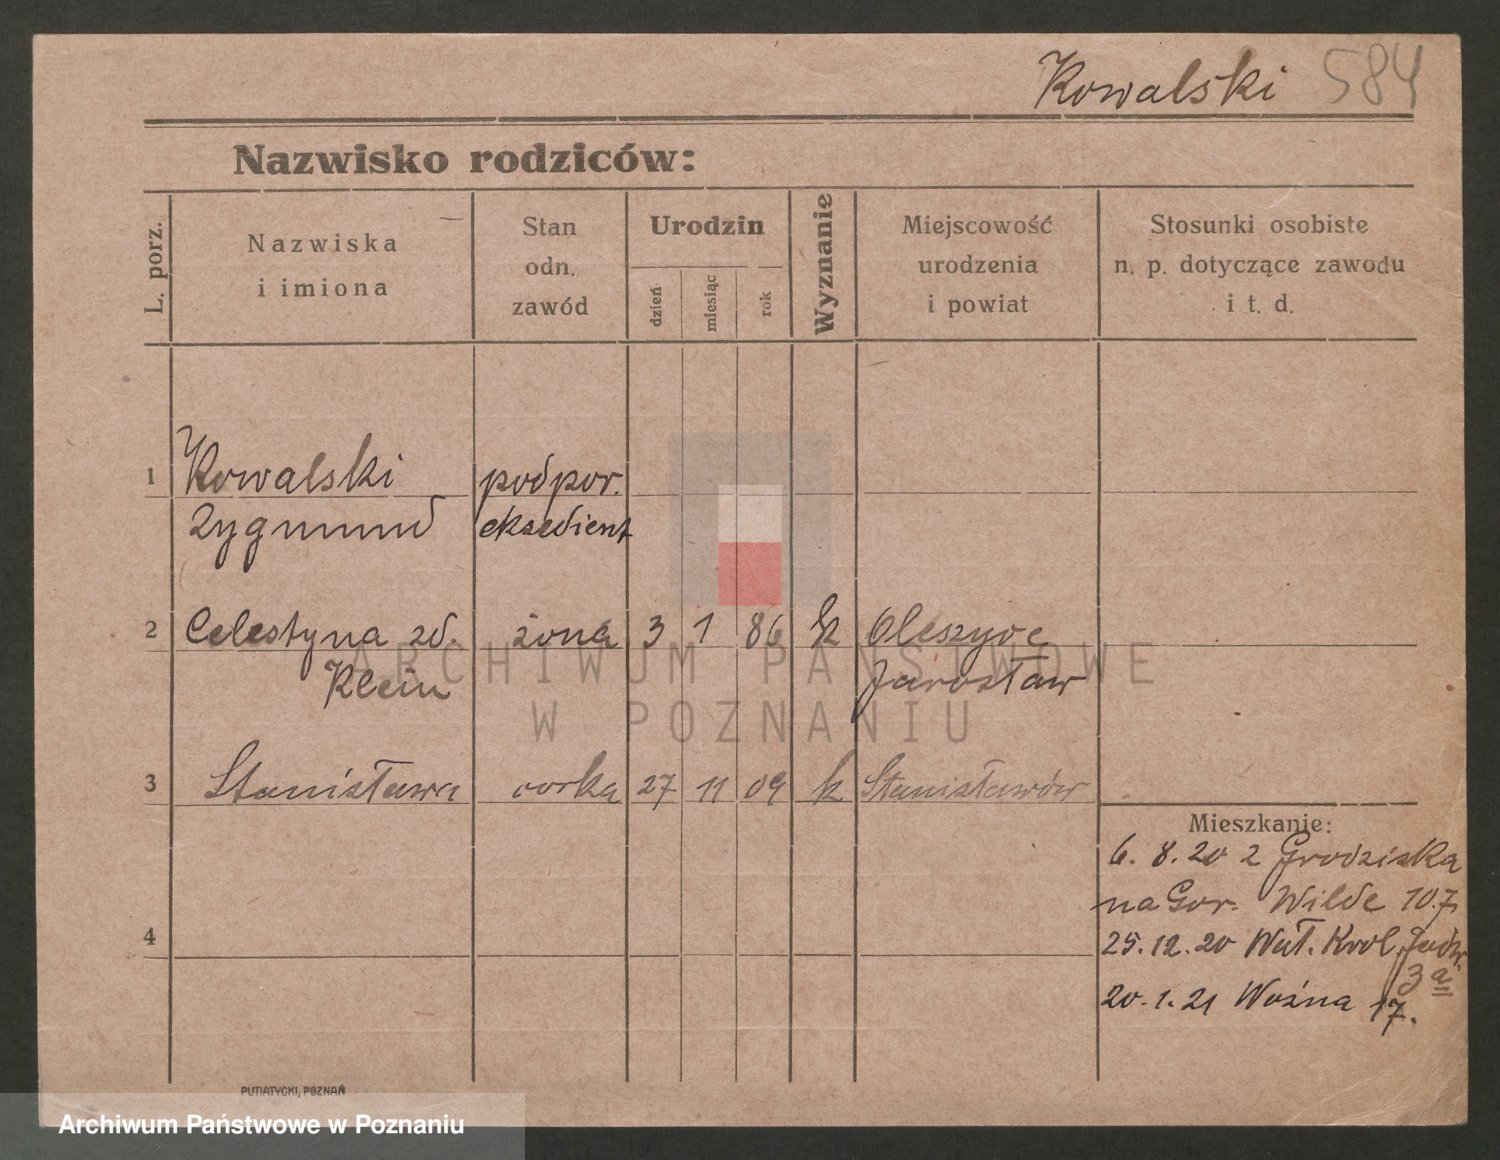 Kowalski 584
Nazwisko rodziców:
L. porz.
Nazwiska
i imiona
Stan
odn.
zawód
Urodzin
dzień
miesiąc
rok
Wyznanie
Miejscowość
urodzenia
i powiat
Stosunki osobiste
n. p. dotyczące zawodu
i t. d.
1 Kowalski podpor.
Zygmund eksedient
2 Celestyna zd. żona 3 1 86 k Oleszyce
Klein Jarosław
3 Stanisława corka 27 11 09 k Stanisławów
Mieszkanie:
6. 8. 20 z Grodziska
na Gor. Wilde 107
4
25. 12. 20 Wał. Krol. Jadw.
3 a
20. 1. 21 Woźna 17.
PUTIATYCKI, POZNAŃ
ARCHIWUM PAŃSTWOWE
W POZNANIU
Archiwum Państwowe w Poznaniu